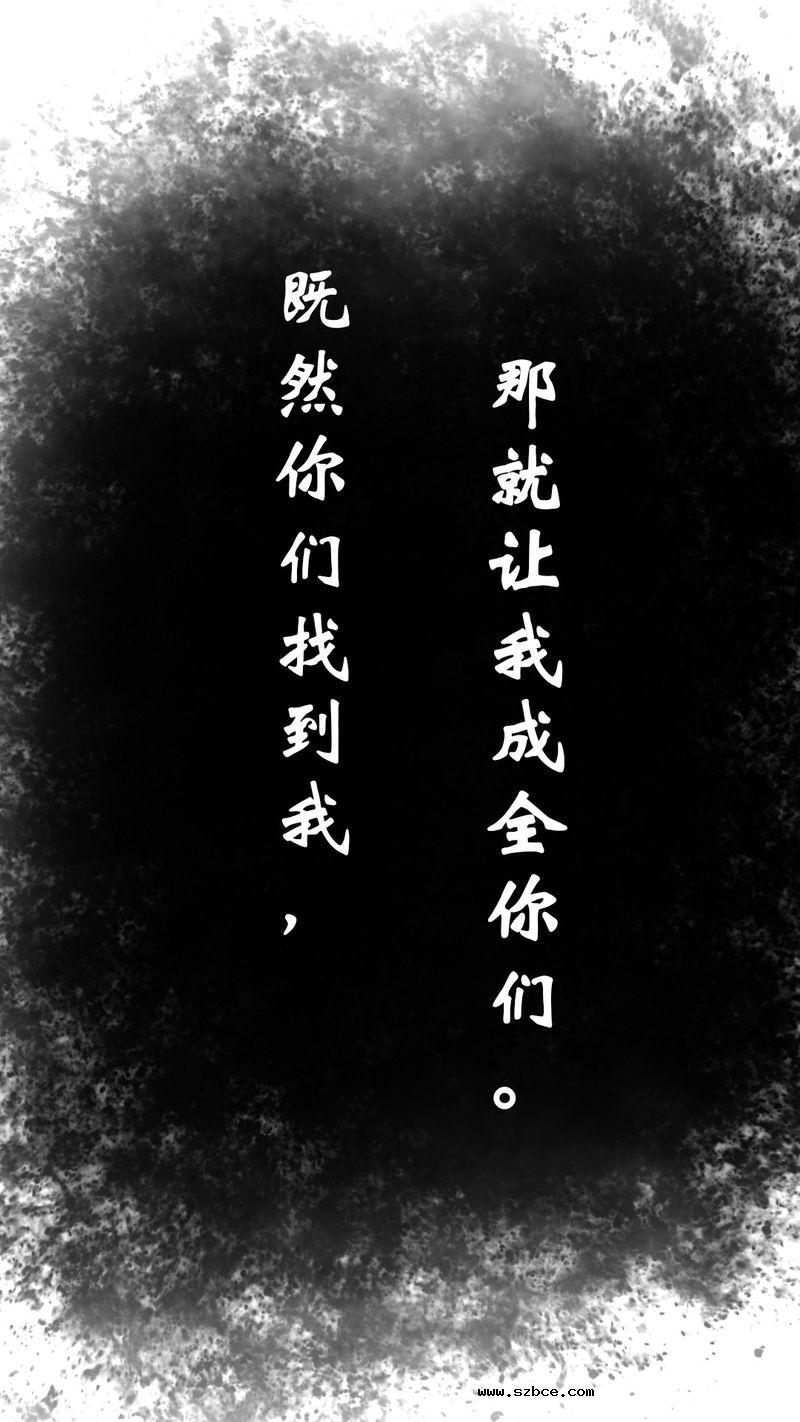 既然你们找到我，
那就让我成全你们。
www.szbce.com